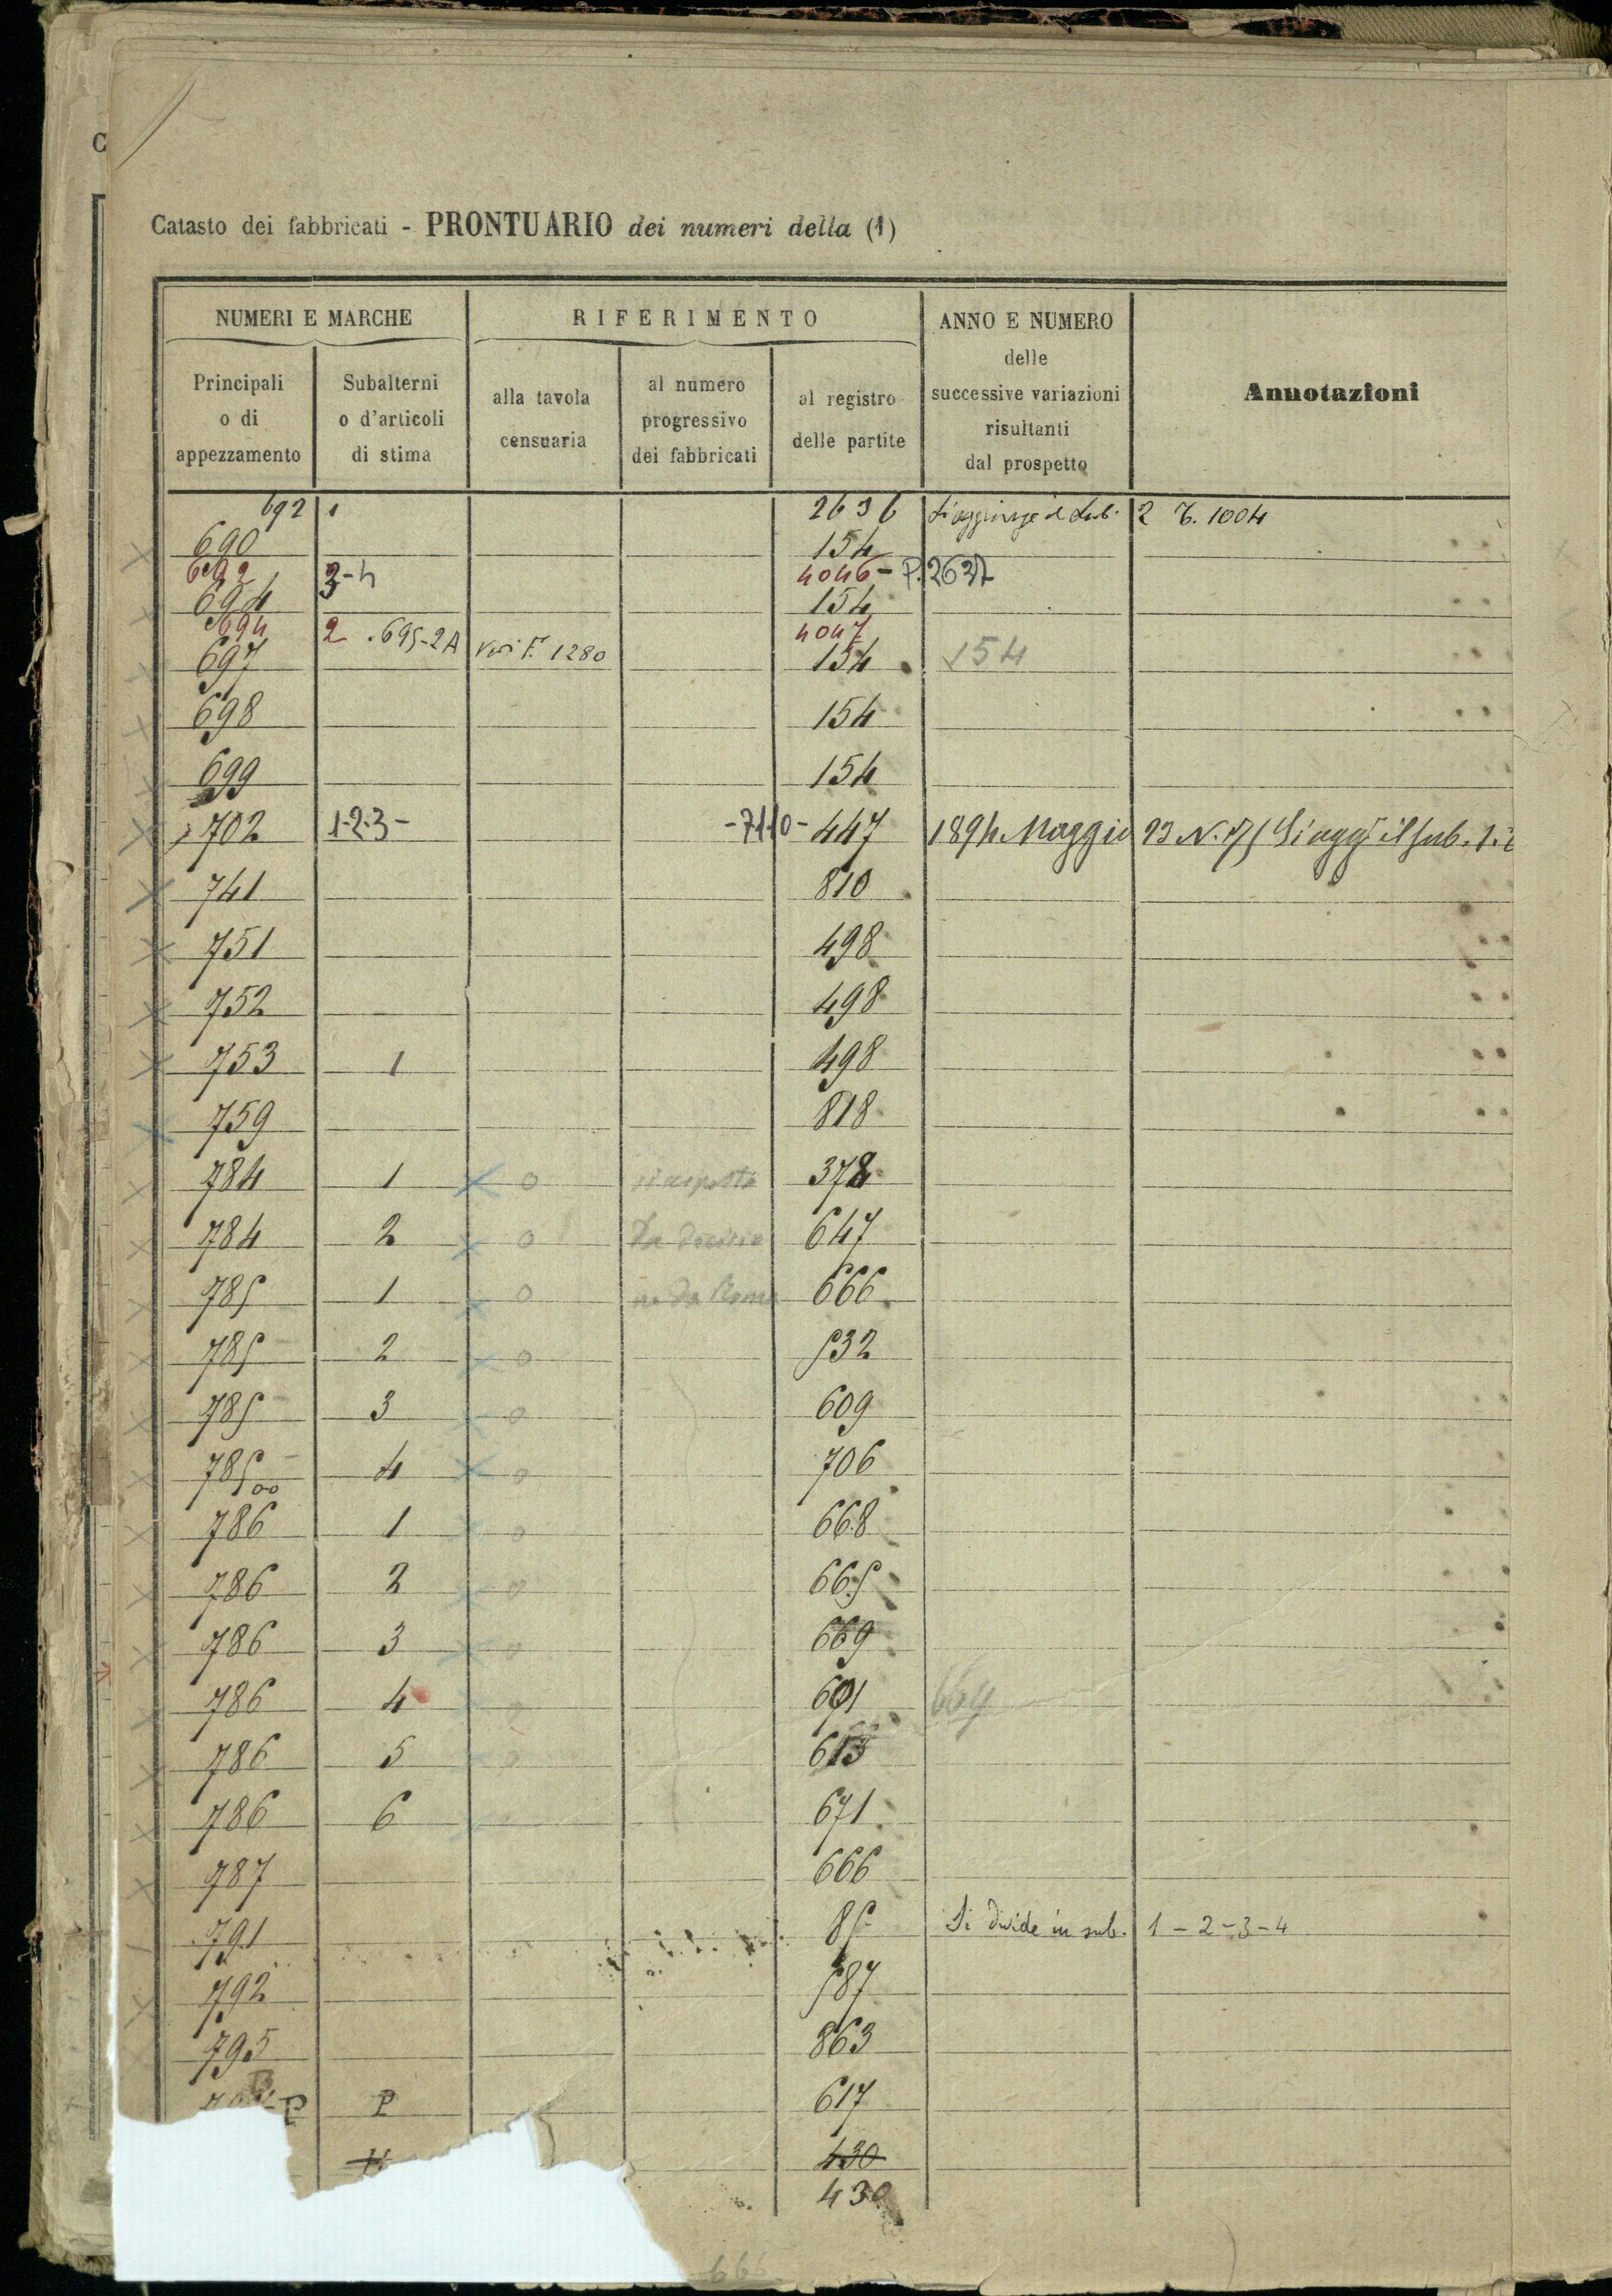 Catasto dei fabbricati - PRONTUARIO dei numeri della (1)
NUMERI E MARCHE
RIFERIMENTO
ANNO E NUMERO
delle
successive variazioni
risultanti
dal prospetto
Annotazioni
Principali
o di
appezzamento
Subalterni
o d'articoli
di stima
alla tavola
censuaria
al numero
progressivo
dei fabbricati
al registro
delle partite
692 1 2636 Si aggiunge il Sub. 2 T. 1004
690 154
692 3-4 4046 - P. 2637
694 154
694 2 .695-2A 4047
697 F. 1280 154 154
698 154
699 154
702 1-2-3- -7110- 447 1894 Maggio 23 N. Si agg il sub. 1.
741 810
751 498
752 498
753 1 498
759 818
784 1 o 378
784 2 o 647
785 1 o da Roma 666
785 2 o 532
785 3 o 609
785 4 o 706
786 1 o 668
786 2 o 665
786 3 o 669
786 4 o 664
786 5 o 613
786 6 671
787 666
791 85 Si divide in sub. 1-2-3-4
792 587
795 863
P 617
430
430
666